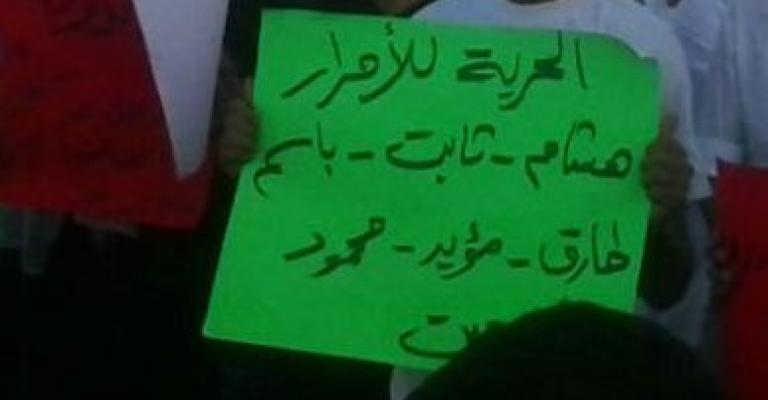 الحرية للأحرار
هشام - ثابت - باسم
طارق - مؤيد - محمود